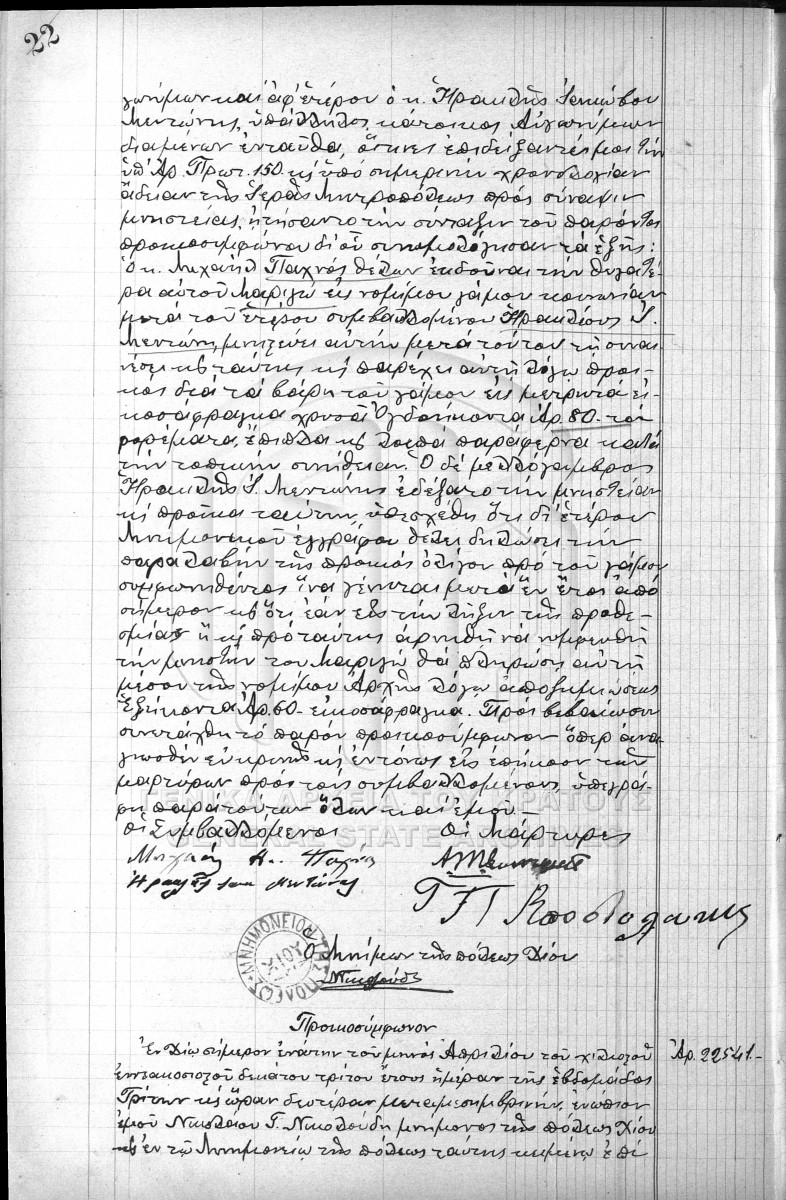 22
γωνήμων και αφ' ετέρου ο κ. Ηρακλής Ιακώβου
Μεντώνης, υπάλληλος, κάτοικος
διαμένων ενταύθα, οίτινες επιδείξαντές μοι την
υπ' Αρ. Πρωτ. 150 κ̀ υπό σημερινήν χρονολογίαν
άδειαν της Ιεράς Μητροπόλεως προς σύναψιν
μνηστείας, ητήσαντο την σύνταξιν του παρόντος
προικοσυμφώνου δι' ου συνωμολόγησαν τα εξής:
Ο κ. Μιχαήλ Παχνός θέλων εκδούναι την θυγατέ-
ρα αυτού Μαριγώ εις νομίμου γάμου κοινωνίαν
μετά του ετέρου συμβαλλομένου Ηρακλέους Ι.
Μεντώνη, μνηστεύει αυτήν μετά τούτου τη συναι
νέσει κ̀ ταύτης κ̀ παρέχει αυτή λόγω προι-
κός δια τα βάρη του γάμου εις μετρητά εί-
κοσάφραγκα χρυσά Ογδοήκοντα Αρ. 80. τα
φορέματα, έπιπλα κ̀ λοιπά παράφερνα κατά
την τοπικήν συνήθειαν. Ο δε μελλόγαμβρος
Ηρακλής Ι. Μεντώνης εδέξατο την μνηστείαν
κ̀ προίκα ταύτην, υπεσχέθη ότι δι' ετέρου
Μνημονικού εγγράφου θέλει δηλώσει την
παραλαβήν της προικός ολίγον προ του γάμου
συμφωνηθέντος ίνα γένηται μετά έν έτος από
σήμερον κ̀ ότι εάν εις την λήξιν της προθε-
σμίας ή κ̀ προ ταύτης αρνηθή να νυμφευθή
την μνηστήν του Μαριγώ θα πληρώση αυτή
μέσον της νομίμου Αρχής λόγω αποζημιώσεως
Εξήκοντα Αρ. 60- εικοσάφραγκα. Προς βεβαίωσιν
συνετάχθη το παρόν προικοσύμφωνον όπερ ανα-
γνωσθέν ευκρινώς κ̀ εντόνως εις επήκοον των
μαρτύρων προς τους συμβαλλομένους, υπεγρά-
φη παρά τούτων όλων και εμού.-
Οι Συμβαλλόμενοι Οι Μάρτυρες
Ηρακλής Ιακ Μεντώνης
Αποστολάκης
ΓΕΝΙΚΑ ΑΡΧΕΙΑ ΤΟΥ ΚΡΑΤΟΥΣ
GENERAL STATE ARCHIVES
ΜΝΗΜΟΝΕΙΟΝ ΤΗΣ ΠΟΛΕΩΣ ΧΙΟΥ
Ο Μνήμων της πόλεως Χίου
Προικοσύμφωνον
Εν Χίω σήμερον ενάτην του μηνός Απριλίου του χιλιοστού Αρ. 22541.-
εννεακοσιοστού δεκάτου τρίτου έτους ημέραν της εβδομάδος
Τρίτην κ̀ ώραν δευτέραν μεταμεσημβρινήν, ενώπιον
εμού Νικολάου Γ. Νικολούδη μνήμονος της πόλεως Χίου
κ̀ εν τω Μνημονείω της πόλεως ταύτης κειμένω επί